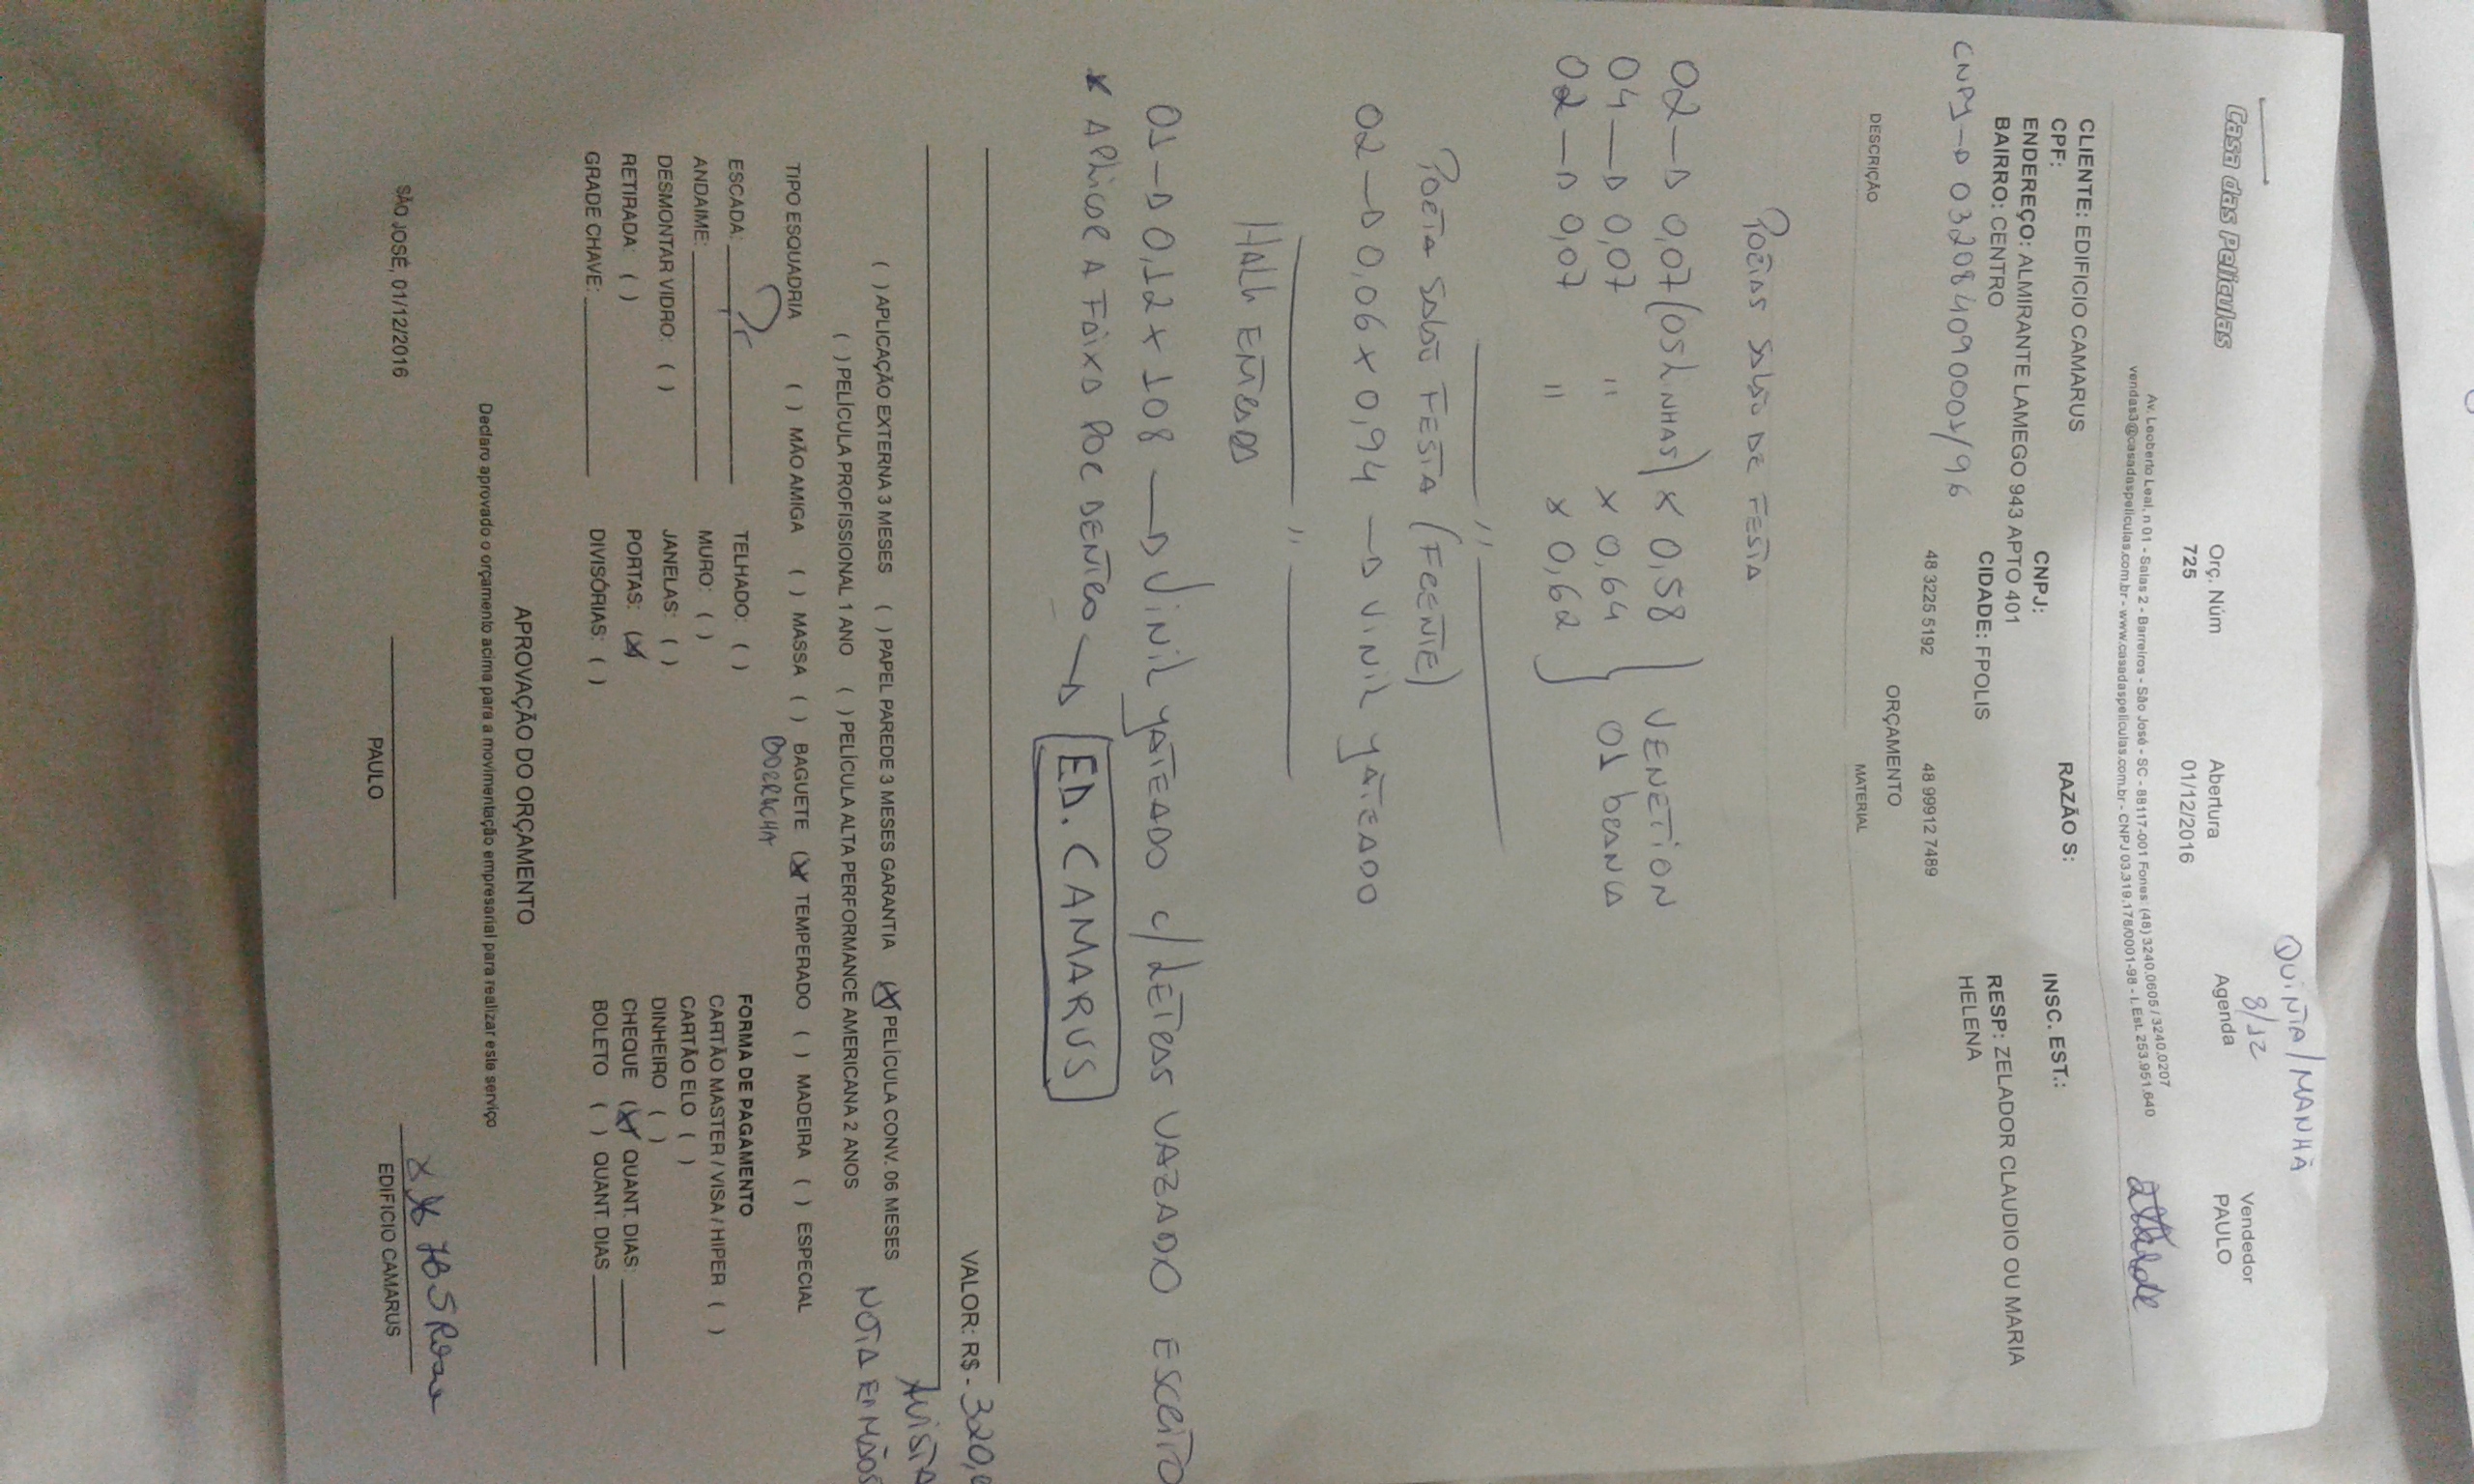 QUINTA/MANHÃ
8/12
Casa das Películas
Orç. Núm
725
Abertura
01/12/2016
Agenda
Vendedor
PAULO
Av. Leoberto Leal, n 01 - Salas 2 - Barreiros - São José - SC - 88117-001 Fones: (48) 3240.0605 / 3240.0207
vendas3@casadaspeliculas.com.br - www.casadaspeliculas.com.br - CNPJ 03.319.178/0001-98 - I. Est. 253.951.640
CLIENTE: EDIFICIO CAMARUS
RAZÃO S:
CPF:
CNPJ:
INSC. EST.:
ENDEREÇO: ALMIRANTE LAMEGO 943 APTO 401
BAIRRO: CENTRO
CIDADE: FPOLIS
RESP: ZELADOR CLAUDIO OU MARIA HELENA
CNPJ → 03208409 0001/96
48 3225 5192
48 99912 7489
ORÇAMENTO
DESCRIÇÃO
MATERIAL
PORTAS SALÃO DE FESTA
02 → 0,07 (05 LINHAS) x 0,58 } VENETION
04 → 0,07 " x 0,64 } 01 BRANCA
02 → 0,07 " x 0,62 }
"
PORTA SALÃO FESTA (FRENTE)
02 → 0,06 x 0,94 → VINIL JATEADO
"
HALL ENTRADA
01 → 0,12 x 108 → VINIL JATEADO C/ LETRAS VAZADO ESCRITO
* APLICAR A FAIXA POR DENTRO → ED. CAMARUS
VALOR: R$ - 320,
AVISTA
( ) APLICAÇÃO EXTERNA 3 MESES ( ) PAPEL PAREDE 3 MESES GARANTIA (X) PELÍCULA CONV. 06 MESES
( ) PELÍCULA PROFISSIONAL 1 ANO ( ) PELÍCULA ALTA PERFORMANCE AMERICANA 2 ANOS
NOTA EM MÃOS
TIPO ESQUADRIA ( ) MÃO AMIGA ( ) MASSA ( ) BAGUETE (X) TEMPERADO ( ) MADEIRA ( ) ESPECIAL
BORRACHA
ESCADA:
TELHADO: ( )
FORMA DE PAGAMENTO
ANDAIME:
MURO: ( )
CARTÃO MASTER / VISA / HIPER ( )
DESMONTAR VIDRO: ( )
JANELAS: ( )
CARTÃO ELO ( )
RETIRADA: ( )
PORTAS: (X)
DINHEIRO ( )
GRADE CHAVE:
DIVISÓRIAS: ( )
CHEQUE (X) QUANT. DIAS:
BOLETO ( ) QUANT. DIAS
APROVAÇÃO DO ORÇAMENTO
Declaro aprovado o orçamento acima para a movimentação empresarial para realizar este serviço
SÃO JOSÉ, 01/12/2016
PAULO
EDIFICIO CAMARUS